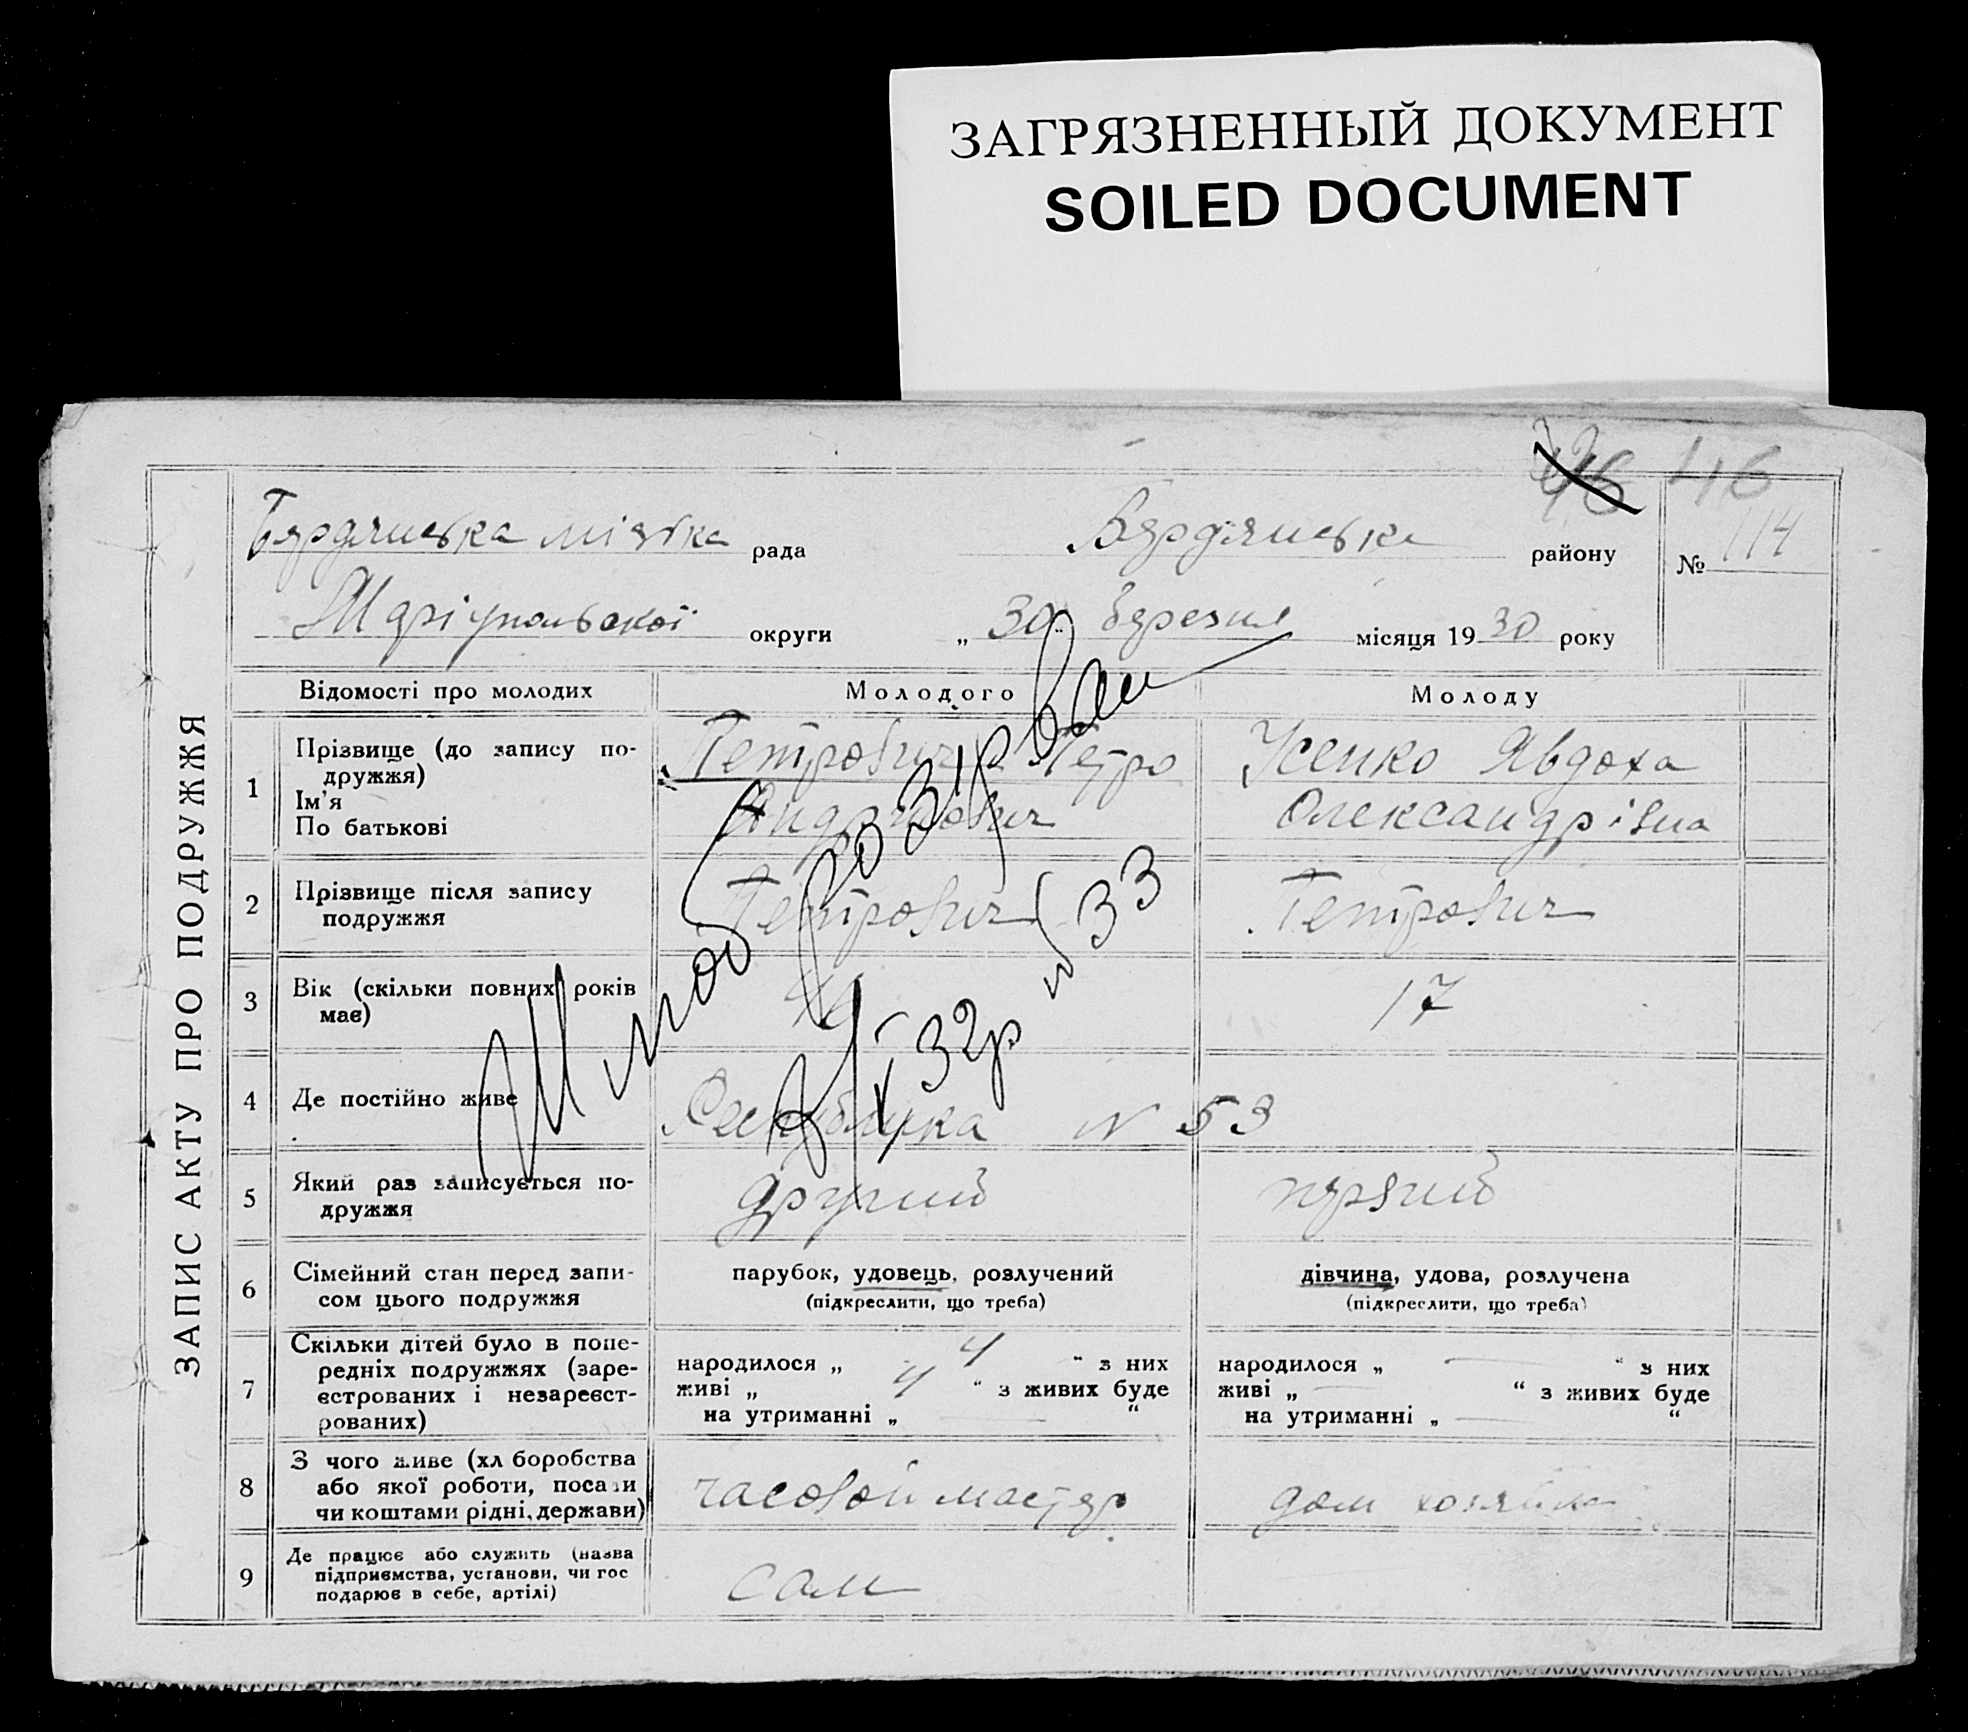 ЗАГРЯЗНЕННЫЙ ДОКУМЕНТ
SOILED DOCUMENT
46 46
Бердянська міська рада Бердянська району № 114
Маріупольської округи „ 30 " березня місяця 1930 року
ЗАПИС АКТУ ПРО ПОДРУЖЖЯ
Відомості про молодих Молодого Молоду
1 Прізвище (до запису по-
дружжя)
Ім'я
По батькові
Петрович Петро
Андрієвич
Усенко Явдоха
Олександрівна
2 Прізвище після запису
подружжя
Петрович
Петрович
3 Вік (скільки повних років
має)
17
4 Де постійно живе
Республика N 53
5 Який раз записується по-
дружжя
другий
первий
6 Сімейний стан перед запи-
сом цього подружжя
парубок, удовець, розлучений
(підкреслити, що треба)
дівчина, удова, розлучена
(підкреслити, що треба)
7 Скільки дітей було в попе-
редніх подружжях (заре-
єстрованих і незареєст-
рованих)
народилося „ 4 " з них
живі „ 4 " з живих буде
на утриманні „ — "
народилося „ — " з них
живі „ — " з живих буде
на утриманні „ — "
8 З чого живе (хл боробства
або якої роботи, посади
чи коштами рідні, держави)
часовой мастер
дом хозяйка
9 Де працює або служить (назва
підприємства, установи, чи гос
подарює в себе, артілі)
сам
Шлюб розірван
32р N 33